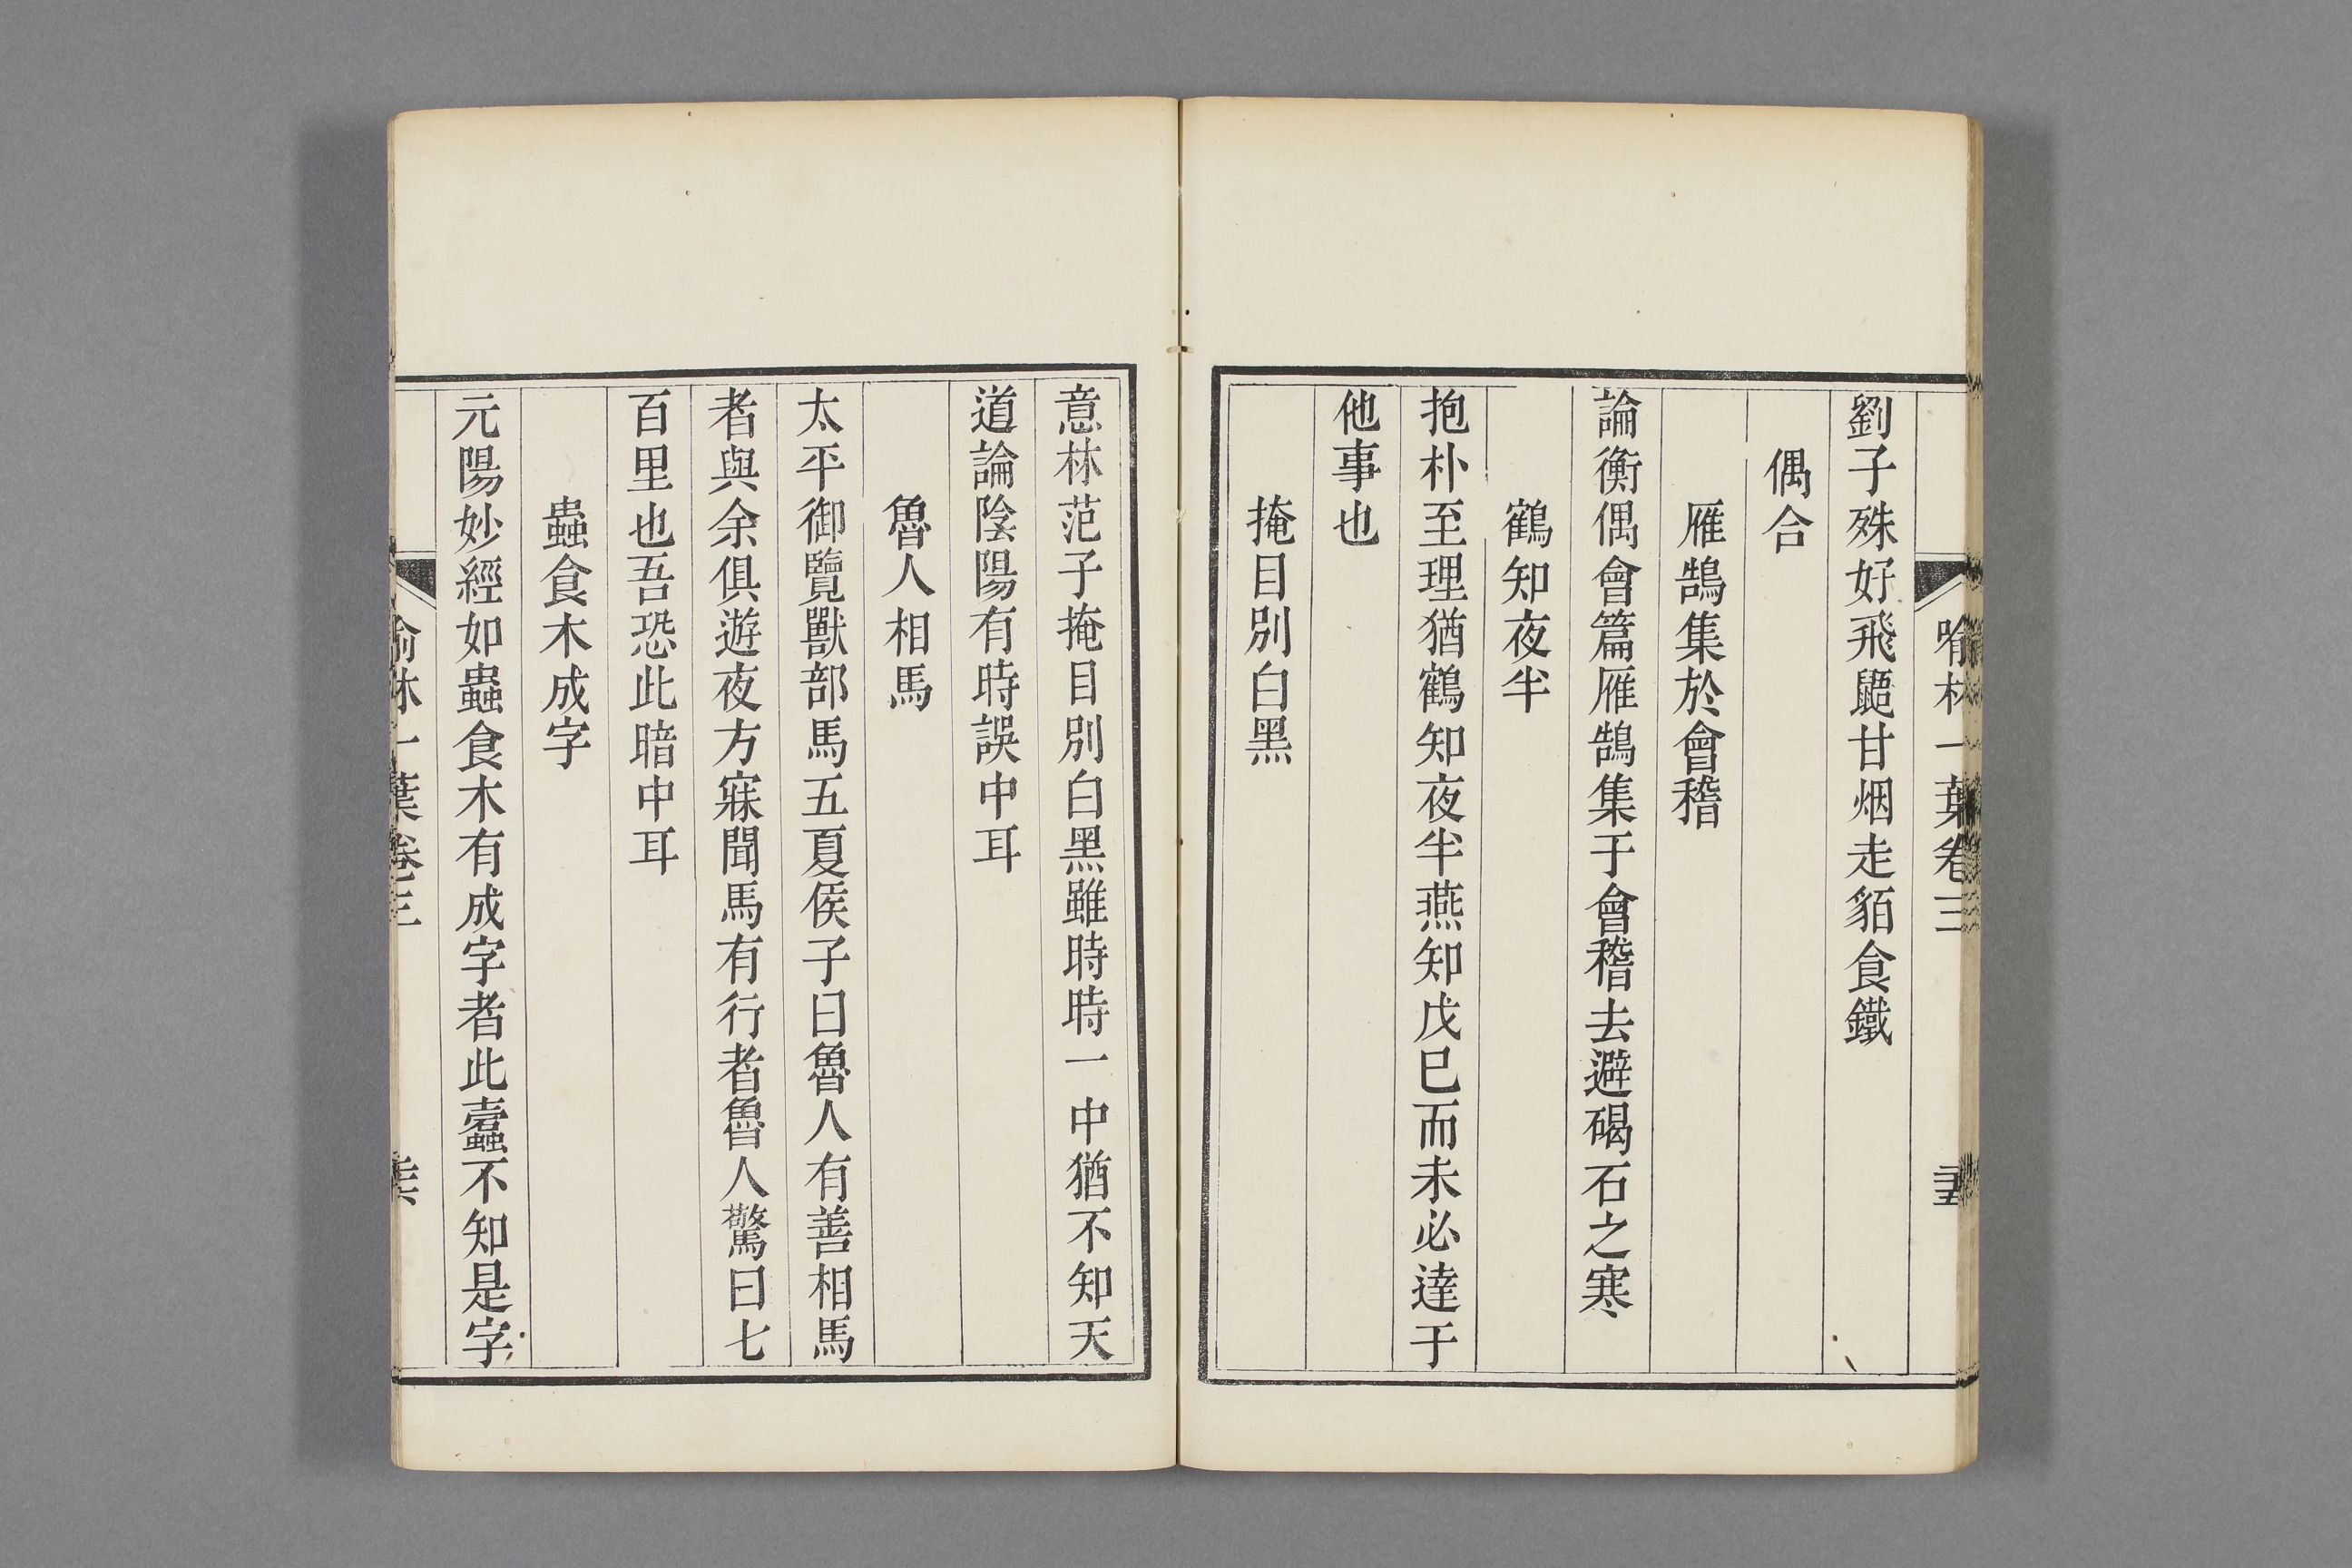 喻林一葉卷三
劉子殊好飛鼯甘烟走貊食鐵
偶合
雁鵠集於會稽
論衡偶會篇雁鵠集于會稽去避碣石之寒
鶴知夜半
抱朴至理猶鶴知夜半燕知戊巳而未必達于
他事也
掩目別白黑
意林范子掩目別白黑雖時時一中猶不知天
道論陰陽有時誤中耳
魯人相馬
太平御覽獸部馬五夏侯子曰魯人有善相馬
者與余俱遊夜方寐聞馬有行者魯人驚曰七
百里也吾恐此暗中耳
蟲食木成字
元陽妙經如蟲食木有成字者此蠹不知是字
喻林一葉卷三